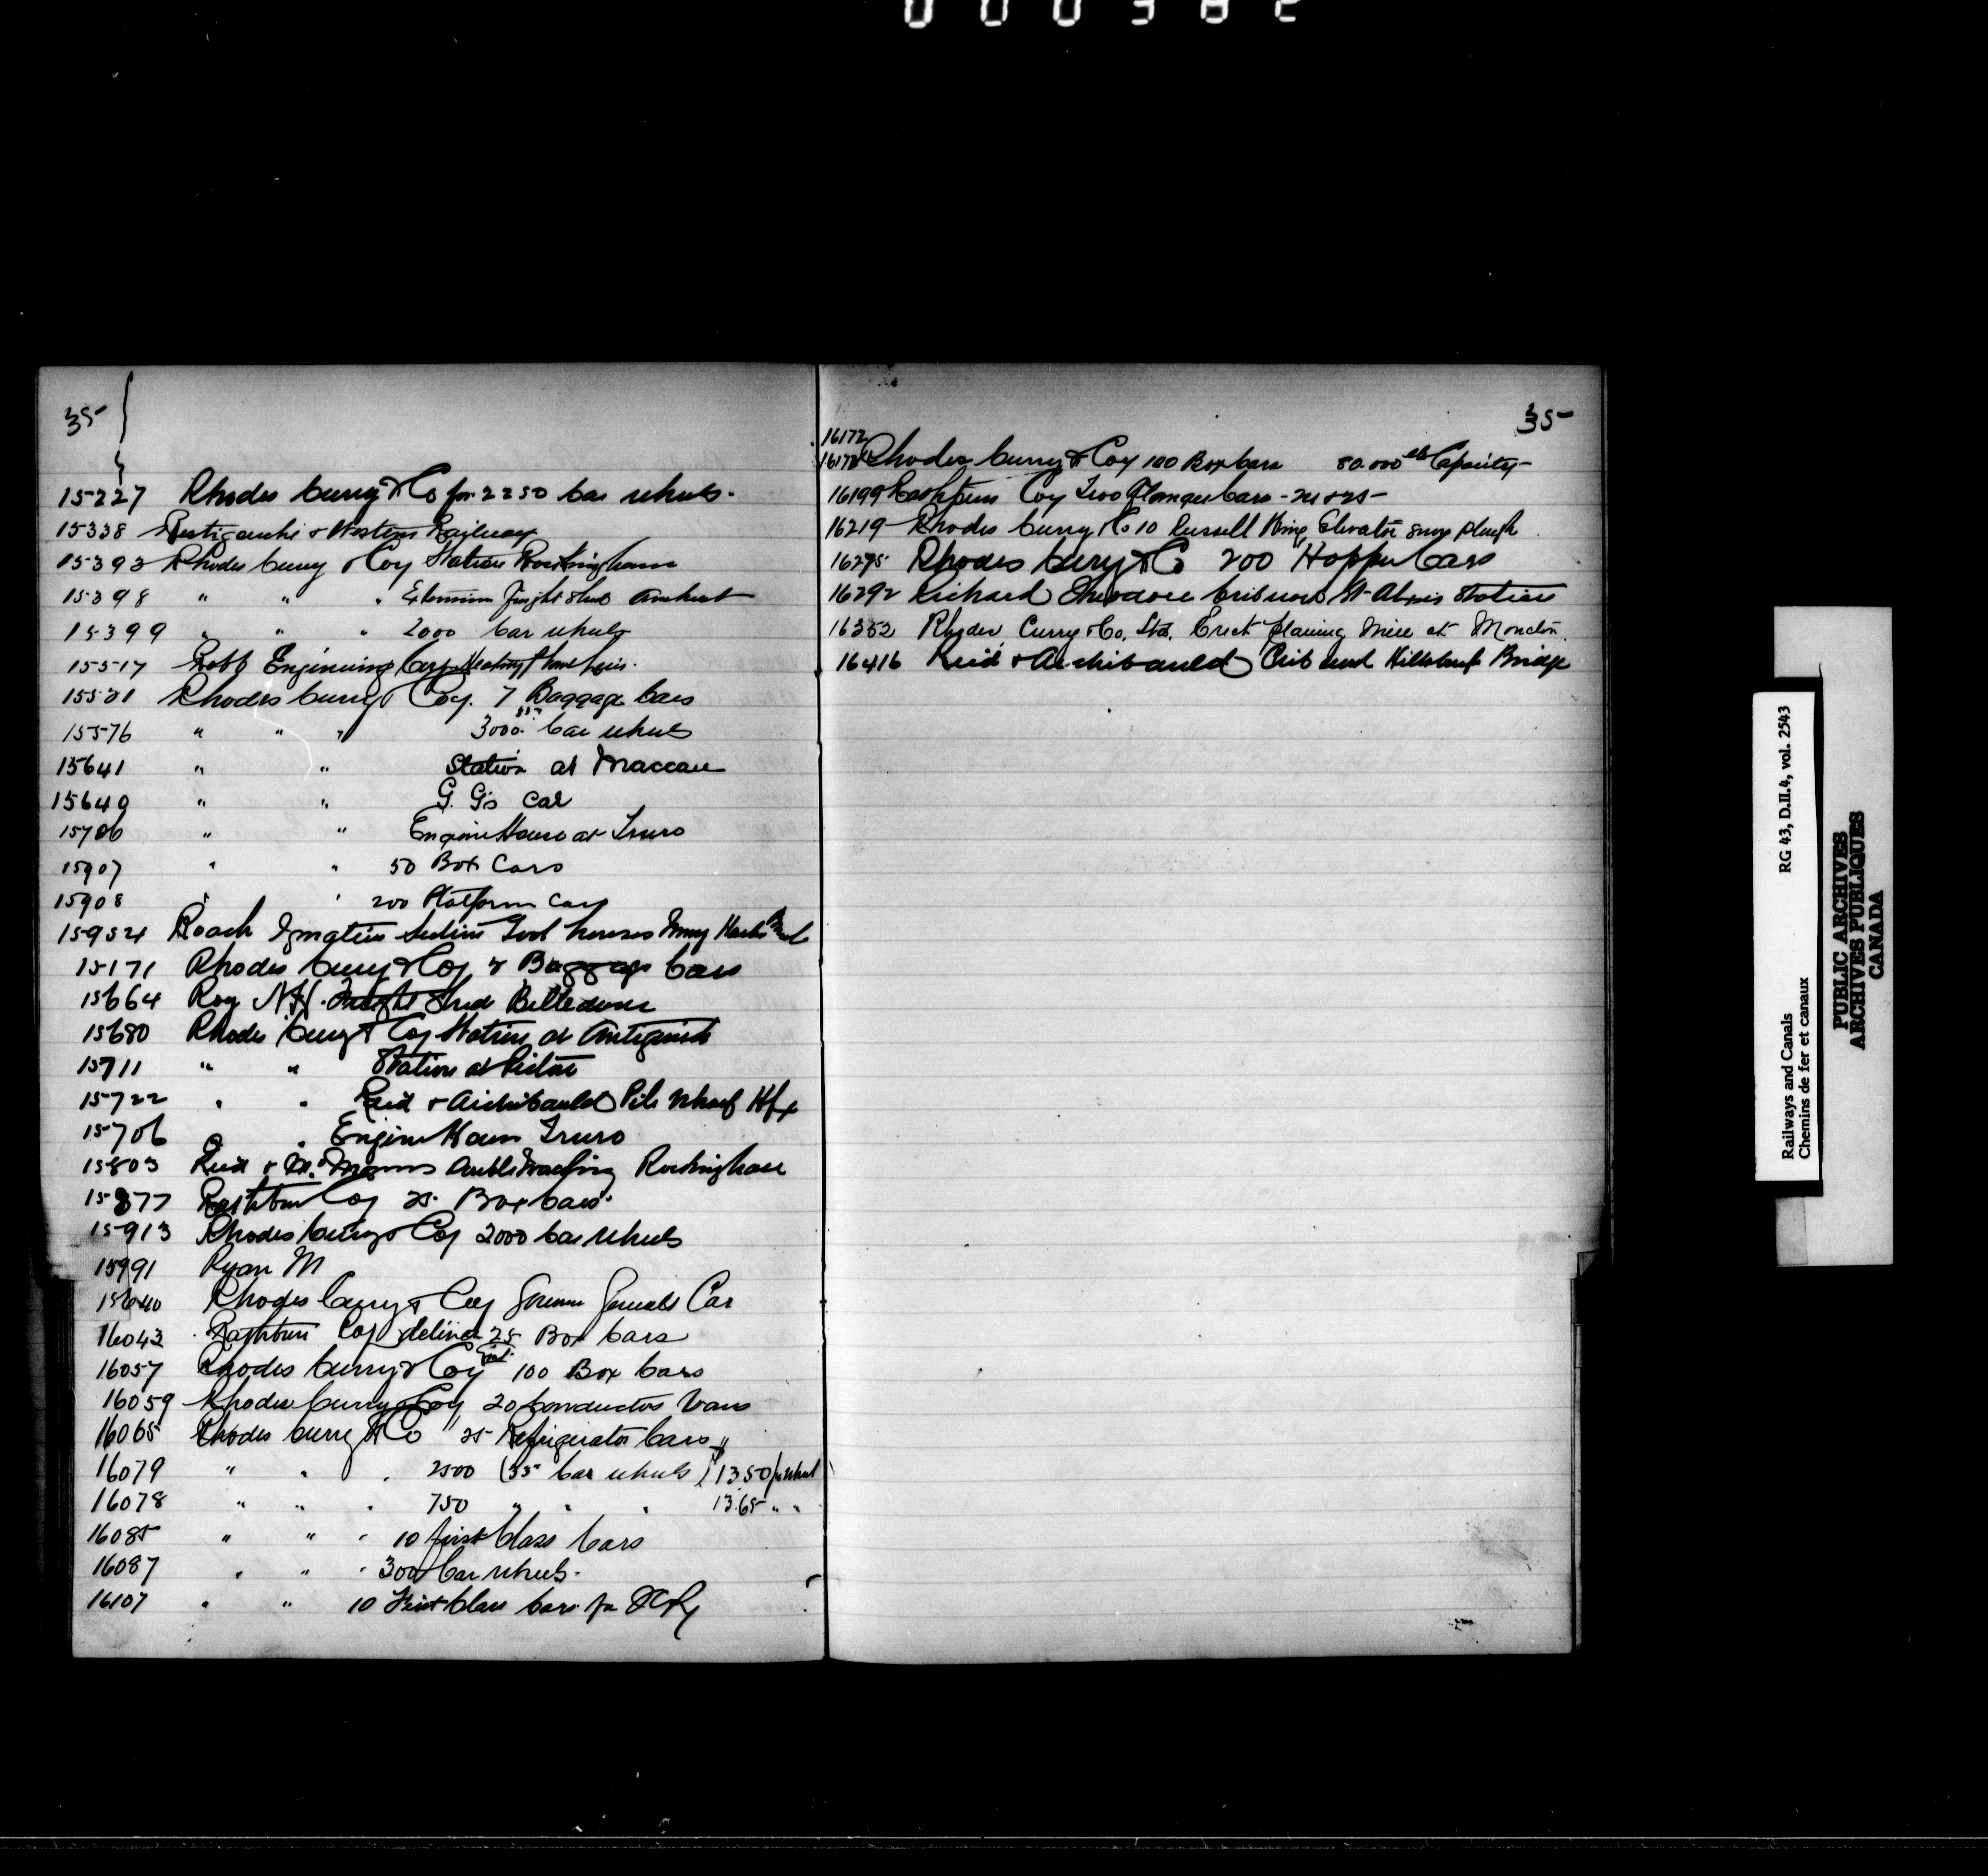 000382
35
15227 Rhodes Curry & Co for 2250 Car wheels.
15338 Restigouche & Western Railway
15393 Rhodes Curry & Coy Station Rockingham
15398 " " " Extension Freight Shed Amherst
15399 " " " 2000 Car wheels
15517 Robb Engineering Coy Heating Plant Levis.
15521 Rhodes Curry & Coy. 7 Baggage Cars
15576 " " " 3000 Car wheels
15641 " " Station at Maccan
15640 " " G. G's Car
15706 " " Engine House at Truro
15907 " " 50 Box Cars
15908 " " 200 Platform Cars
15952 Roach Ignatius Section Tool houses Murry Harbor
15171 Rhodes Curry & Coy 7 Baggage Cars
15664 Roy N.H. Freight Shed Belledune
15680 Rhodes Curry & Coy Station at Antigonish
15711 " " Station at Pictou
15722 " " Reid & Archibauld Pile Wharf Hfx
15706 " " Engine House Truro
15803 Reid & McManus double tracking Rockingham
15877 Rathbun Coy 25 Box Cars.
15913 Rhodes Curry & Coy 2000 Car Wheels
15991 Ryan M
15640 Rhodes Curry & Coy Governor Generals Car
16043 Rathbun Coy deliver 25 Box Cars
16057 Rhodes Curry & Coy 100 Box Cars
16059 Rhodes Curry & Coy 20 Conductors Vans
16065 Rhodes Curry & Co 25 Refrigerator Cars
16079 " " " 2500 (33" Car wheels) $13.50 per wheel
16078 " " " 750 " " " 13.65 " "
16085 " " " 10 first Class Cars
16087 " " " 300 Car wheels.
16107 " " 10 First Class Cars for ICRy
35
16172
16173 Rhodes Curry & Coy 100 Box Cars 80.000 lb Capacity
16199 Rathbun Coy Two Flanger Cars - 24 & 25 -
16219 Rhodes Curry & Co 10 Russell Wing Elevator snow plough
16275 Rhodes Curry & Co 200 Hopper Cars
16292 Richard Theodore Cribwork St Alexis Station
16353 Rhodes Curry & Co. Ltd. Erect Planing Mill at Moncton.
16416 Reid & Archibauld Crib work Hillsburgh Bridge
Railways and Canals RG 43, D.II.4, vol. 2543
Chemins de fer et canaux
PUBLIC ARCHIVES
ARCHIVES PUBLIQUES
CANADA